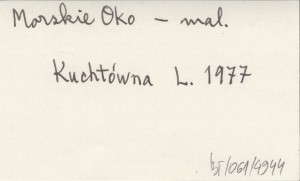 Morskie Oko – mal.
Kuchtówna L. 1977
bj/061/4944